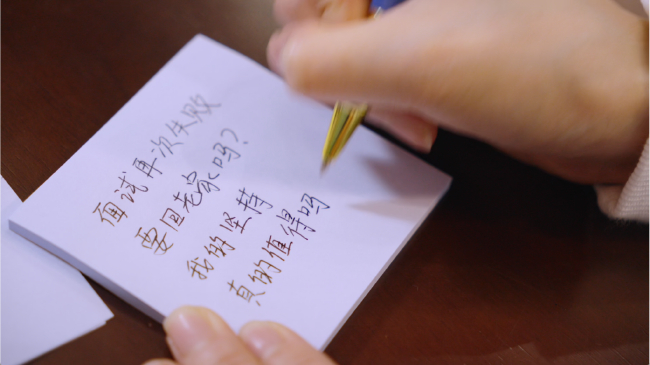 面试再次失败
要回老家吗？
我的坚持
真的值得吗